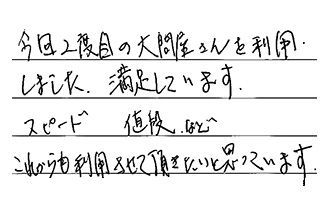 今回2度目の大問屋さんを利用.
しました. 満足しています.
スピード 値段.など
これからも利用させて頂きたいと思っています.